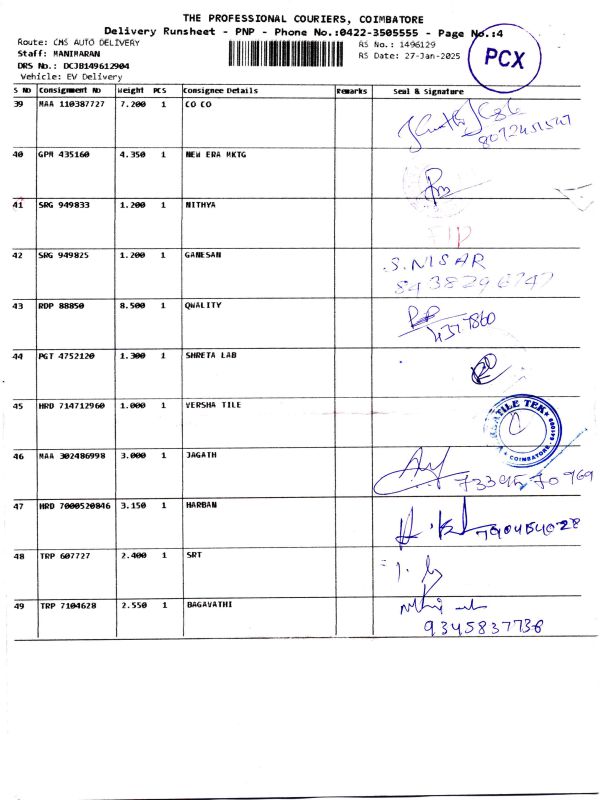 THE PROFESSIONAL COURIERS, COIMBATORE
Delivery Runsheet - PNP - Phone No.:0422-3505555 - Page No.:4
Route: CMS AUTO DELIVERY
RS No.: 1496129
Staff: MANIMARAN
RS Date: 27-Jan-2025
DRS No.: DCJB149612904
Vehicle: EV Delivery
PCX
S No Consignment No Weight PCS Consignee Details Remarks Seal & Signature
39 MAA 110387727 7.200 1 CO CO
8072451547
40 GPM 435160 4.350 1 NEW ERA MKTG
41 SRG 949833 1.200 1 NITHYA
42 SRG 949825 1.200 1 GANESAN
S.NISAR
8438296747
43 RDP 88850 8.500 1 QWALITY
44 PGT 4752120 1.300 1 SHRETA LAB
45 HRD 714712960 1.000 1 VERSHA TILE
TILE TEK
COIMBATORE
46 MAA 302486998 3.000 1 JAGATH
7339570969
47 HRD 7000520846 3.150 1 HARBAN
48 TRP 607727 2.400 1 SRT
49 TRP 7104628 2.550 1 BAGAVATHI
9345837736